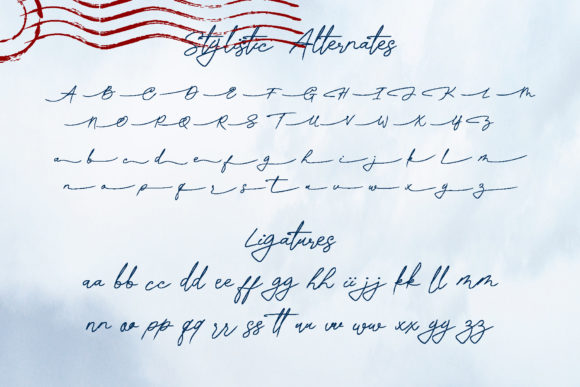 Stylistic Alternates
A B C D E F G H I J K L M
N O P Q R S T U V W X Y Z
a b c d e f g h i j k l m
n o p q r s t u v w x y z
Ligatures
aa bb cc dd ee ff gg hh ii jj kk ll mm
nn oo pp qq rr ss tt uu vv ww xx yy zz